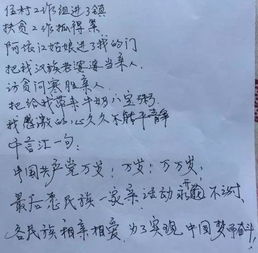 住村工作组进了镇
扶贫工作抓得紧
阿依江姑娘进了我的门
把我汉族老婆婆当亲人
访贫问寒胜亲人
把给我带来牛奶八宝粥
我感激的心久久不能平静
千言汇一句:
中国共产党万岁!万岁!万万岁!
最后悉民族一家亲活动 不
各民族相亲相爱,为了实现中国梦而奋斗!